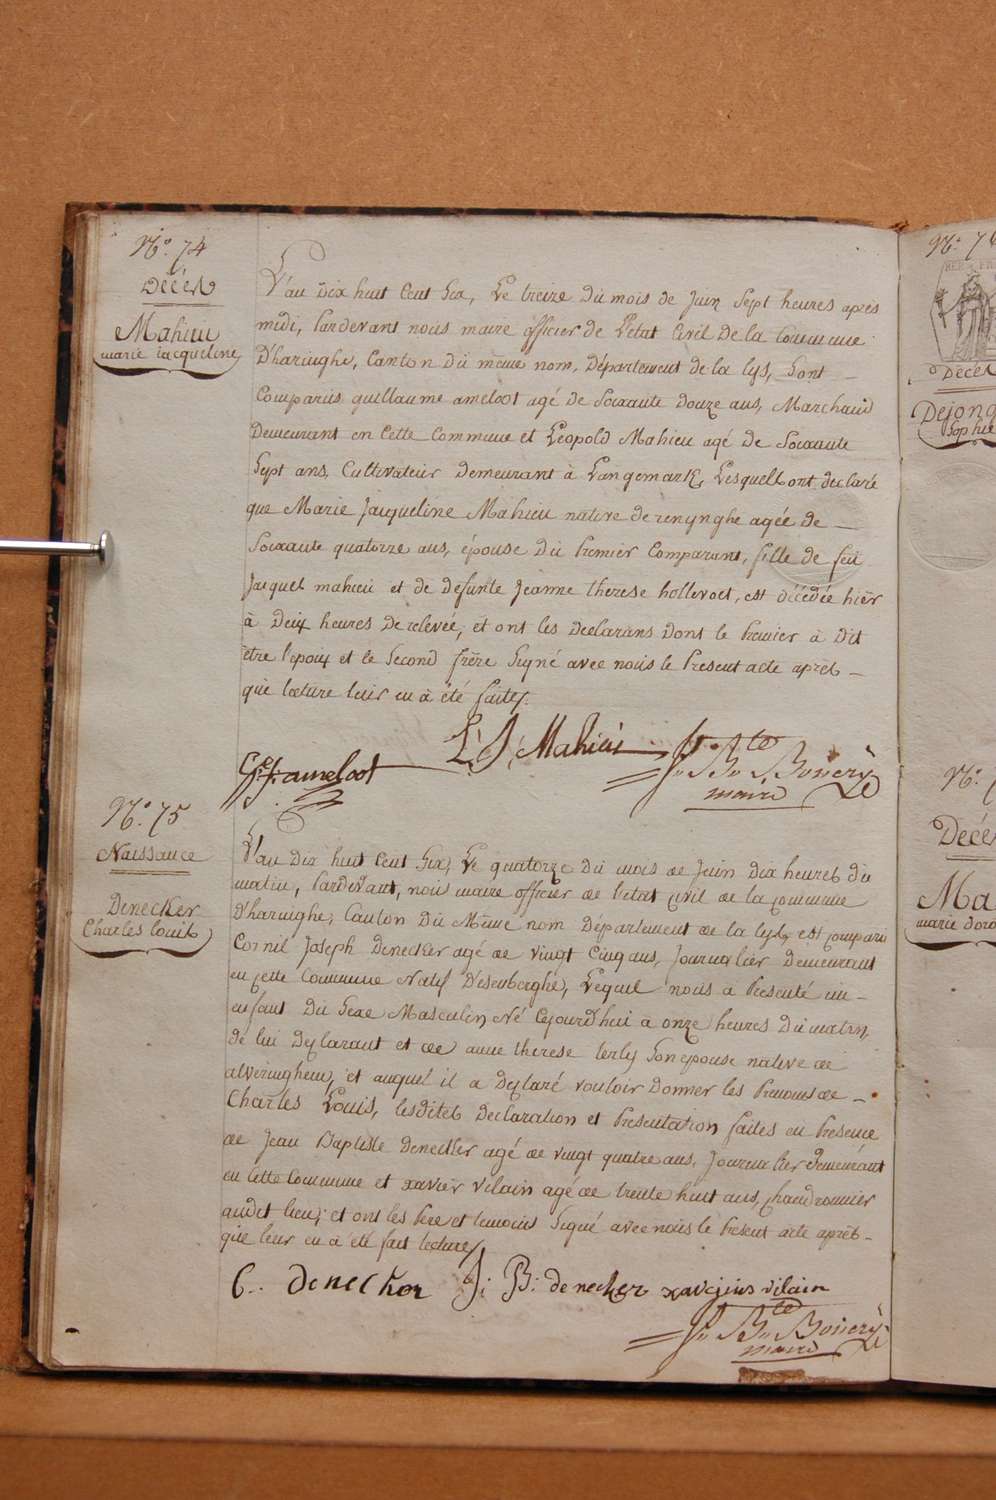 N.° 74
Décès
Mahieu
marie jacqueline
L'an Dix huit Cent Six, Le treize Du mois de Juin Sept heures après
midi, Pardevant nous maire officier de L'etat Civil De la Commune
D'haringhe, Canton Du même nom, Département de la lys, Sont
Comparus guillaume ameloot agé de Soixante Douze ans, Marchand
Demeurant en Cette Commune et Léopold Mahieu agé de Soixante
Sept ans, Cultivateur Demeurant à Langemark, Lesquels ont declaré
que Marie Jacqueline Mahieu native de renynghe agée de
Soixante quatorze ans, épouse du Premier Comparant, fille de feu
Jacques mahieu et de defunte Jeanne therese hollevoet, est décédée hier
à Deux heures De relevée, et ont les Declarans Dont le Premier à Dit
être l'epoux et le Second frère Signé avec nous le Present acte après
que lecture leur en à été faite.
ameloot
L. J. Mahieu
J.n B.te Bouery
maire
N.° 75
Naissance
Denecker
Charles Louis
L'an Dix huit Cent Six, Le quatorze Du mois de Juin Dix heures du
matin, Pardevant, nous maire officier de l'etat Civil de la commune
D'haringhe, Canton Du Même nom Département de la lys, est comparu
Cornil Joseph Denecker agé de Vingt Cinq ans, Journalier Demeurant
en cette Commune Natif D'esenberghe, Lequel nous à Presenté un
enfant Du Sexe Masculin Né Cejourd'hui à onze heures Du matin,
de lui Declarant et de anne therese terly Son epouse native de
alveringhem, et auquel il a Declaré vouloir Donner les Prenoms de
Charles Louis, lesdites Declaration et Presentation faites en Presence
de Jean Baptiste Denecker agé de vingt quatre ans, Journalier Demeurant
en Cette Commune et xavier Vilain agé de trente huit ans, chaudronnier
audit lieu, et ont les Pere et temoins Signé avec nous le Present acte après
que leur en à été fait lecture
C. denecker J: B: denecker xaverius vilain
J.n B.te Bouery
maire
N.° 7
Décès
Dejong
Sophie
N.°
Décè
Ma
marie doro